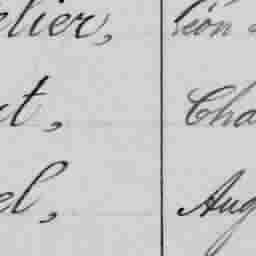 elier, Léon
t, Cha
el, Aug